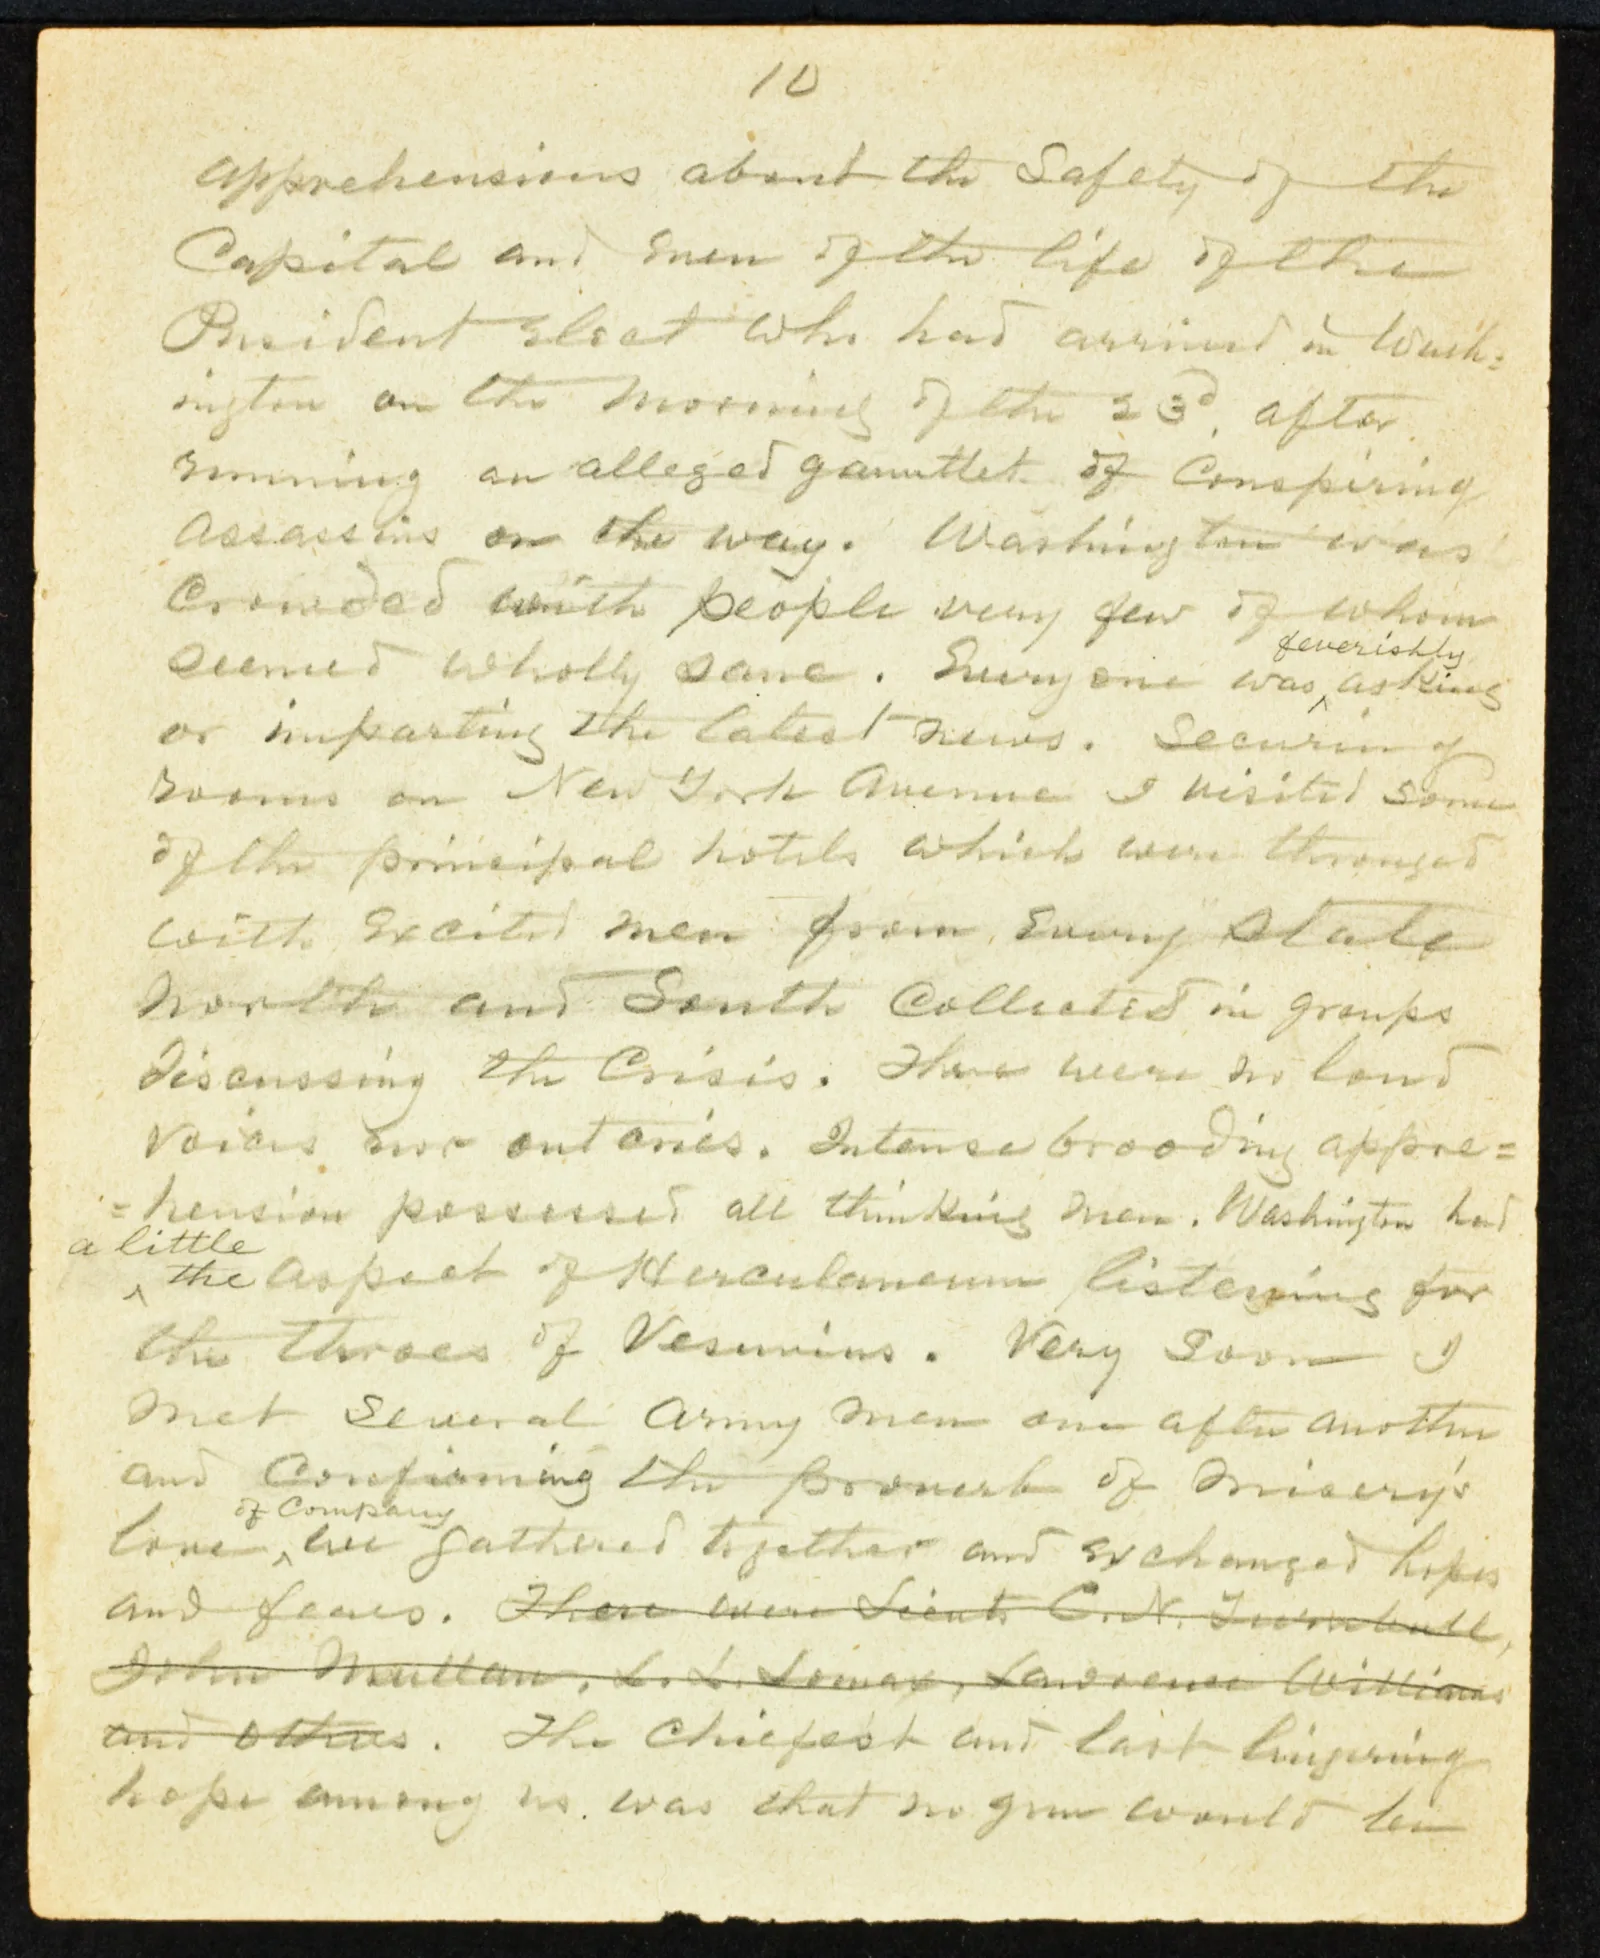 10
apprehensions about the Safety of the
Capital and even of the life of the
President elect who had arrived in Wash=
ington on the morning of the 23d, after
running an alleged gauntlet of Conspiring
assassins on the way. Washington was
Crowded with people very few of whom
seemed wholly sane. Everyone was feverishly asking
or imparting the latest news. Securing
rooms on New York Avenue I visited some
of the principal hotels which were thronged
with excited men from every State
North and South Collected in groups
discussing the Crisis. There were no loud
voices nor outcries. Intense brooding appre=
=hension possessed all thinking men. Washington had
a little the aspect of Herculaneum listening for
the throes of Vesuvius. Very soon I
met several Army men one after another
and Confirming the proverb of Misery's
love of Company, we gathered together and exchanged hopes
and fears. There were Lieuts C. N. Turnbull,
John Mullan, L. L. Lomax, Lawrence Williams
and others. The chiefest and last lingering
hope among us was that no gun would be